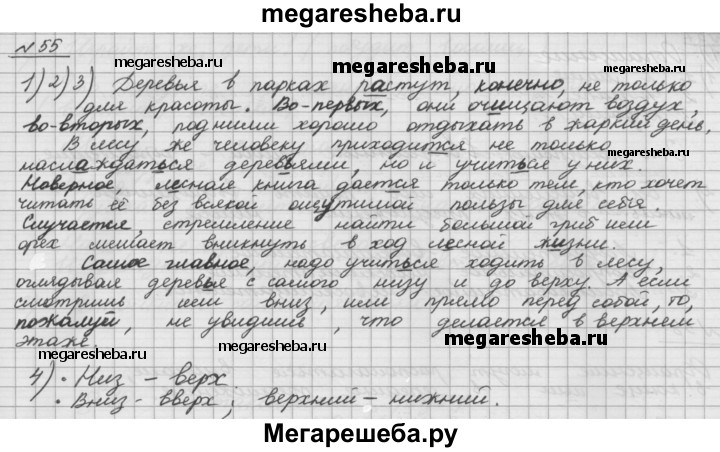 megaresheba.ru
№55
megaresheba.ru megaresheba.ru
1) 2) 3) Деревья в парках растут, конечно, не только
для красоты. Во-первых, они очищают воздух,
во-вторых, под ними хорошо отдыхать в жаркий день.
В лесу же человеку приходится не только
megaresheba.ru
наслаждаться деревьями, но и учиться у них.
Наверное, лесная книга даётся только тем, кто хочет
читать её без всякой ощутимой пользы для себя.
Случается, стремление найти большой гриб или
орех мешает вникнуть в ход лесной жизни.
Самое главное, надо учиться ходить в лесу,
оглядывая деревья с самого низу и до верху. А если
смотришь или вниз, или прямо перед собой, то,
пожалуй, не увидишь, что делается в верхнем
этаже.
megaresheba.ru megaresheba.ru
4) • Низ – верх.
• Вниз – вверх; верхний – нижний.
megaresheba.ru
Мегарешеба.ру